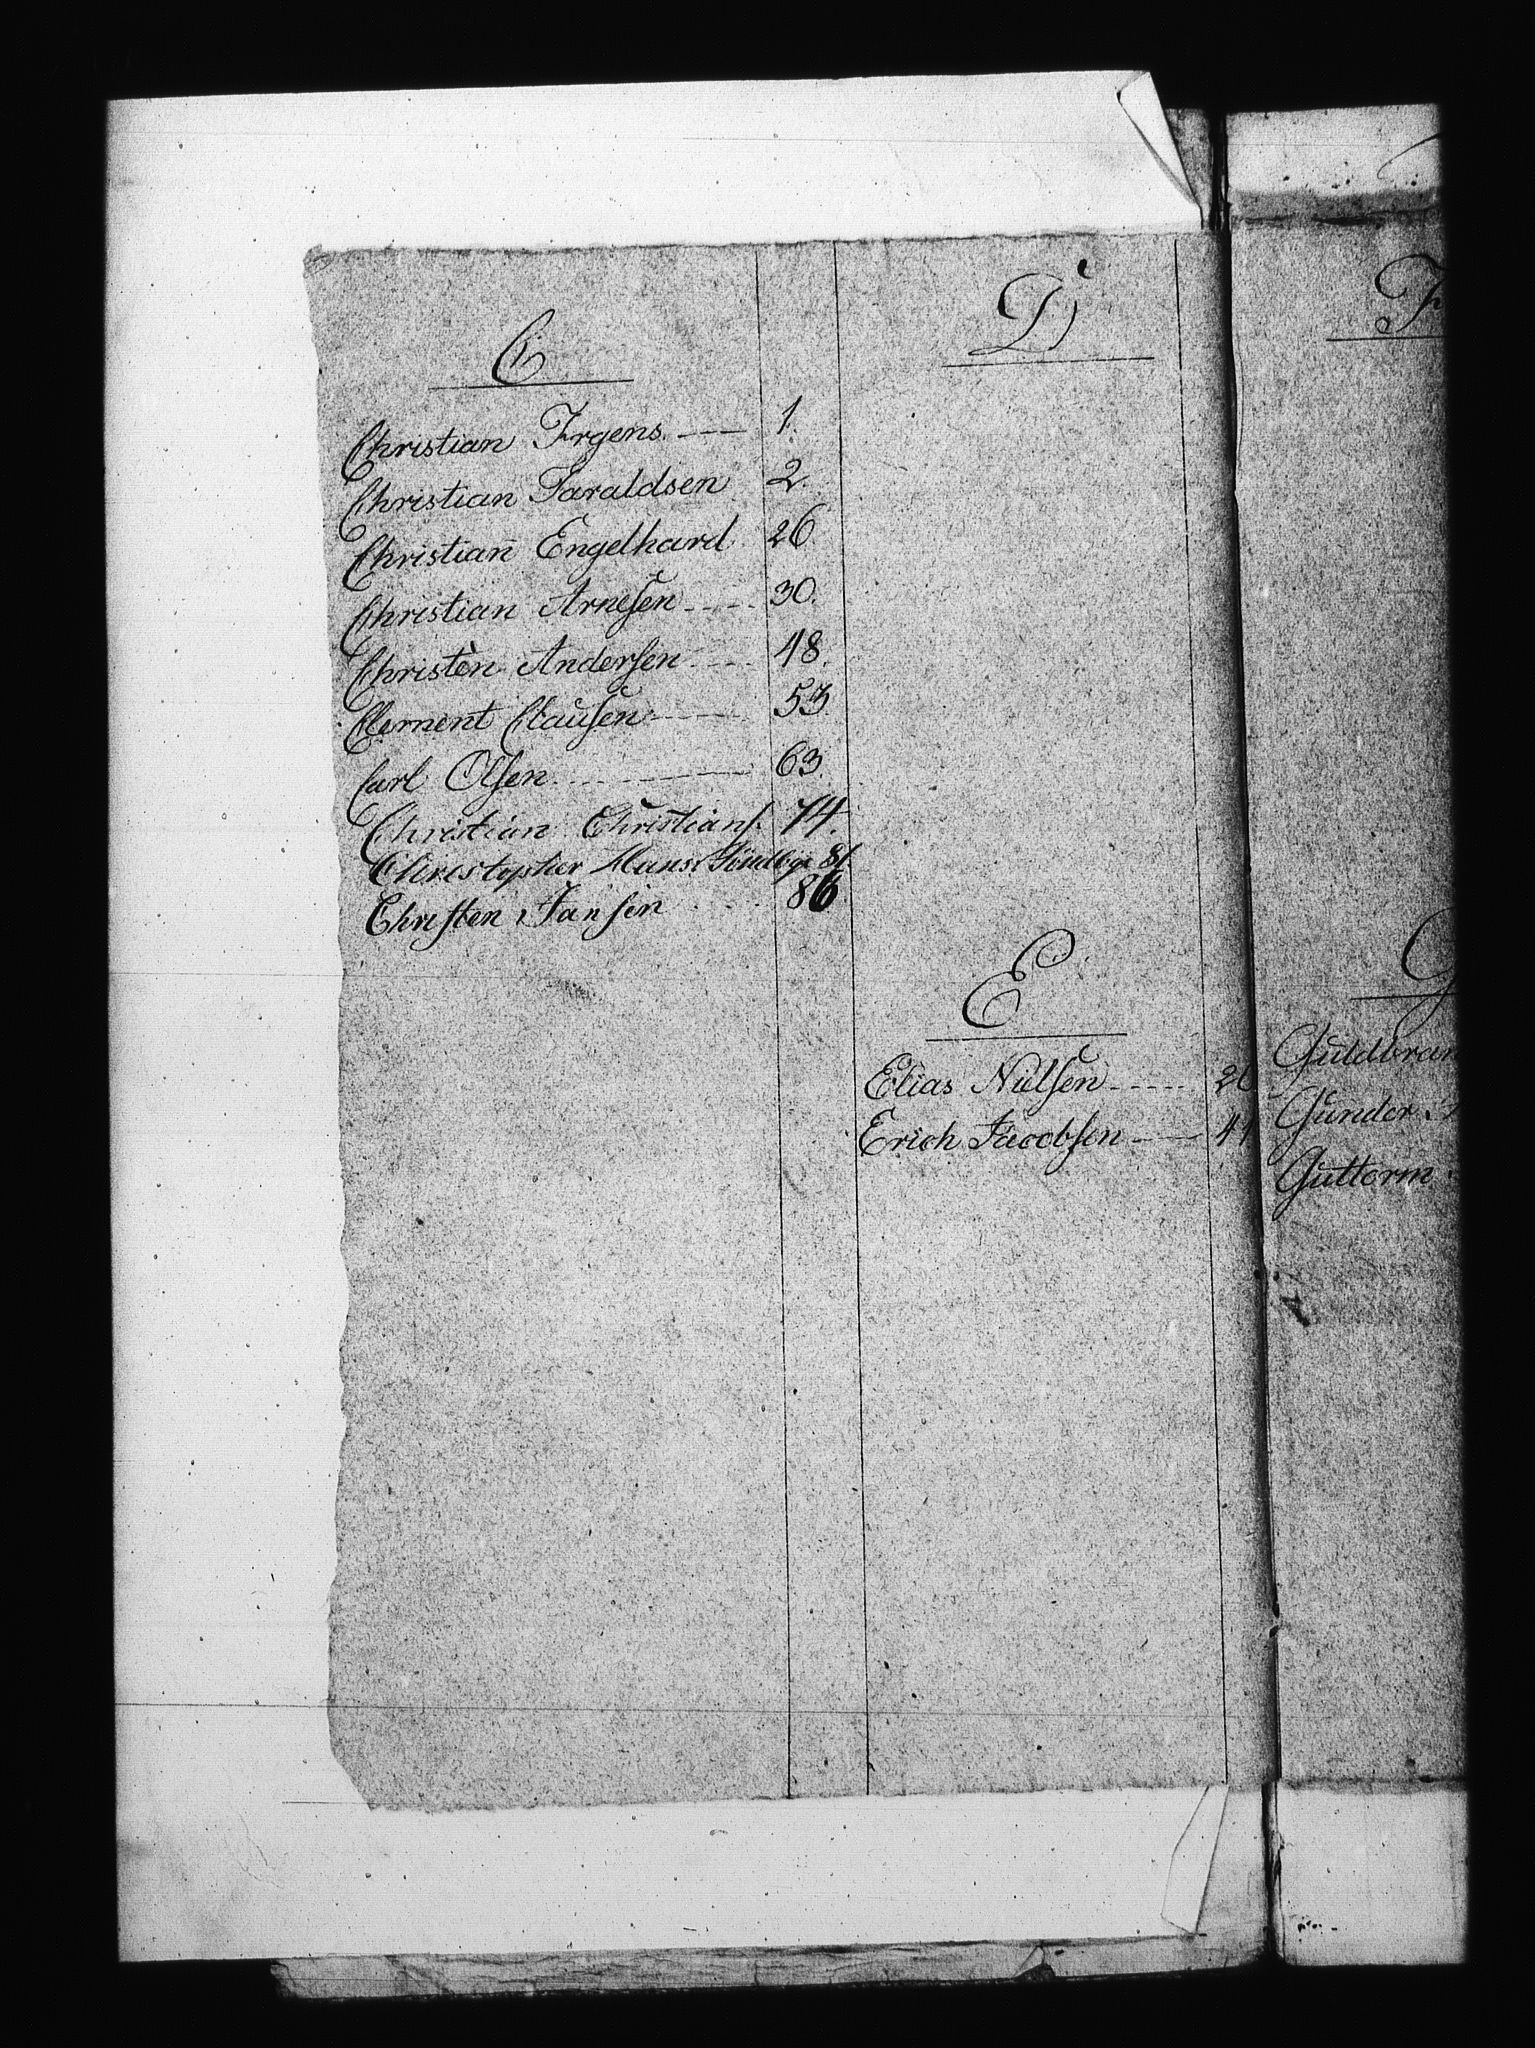 C
Christian Irgens. 1.
Christian Taraldsen 2.
Christian Engelhard 26.
Christian Arnesen 30.
Christen Andersen 48.
Clement Clausen 53.
Carl Olsen 63.
Christian Christians. 74.
Christopher Hans: 81.
Christen Jansen 86.
D
E
Elias Nielsen 26
Erich Jacobsen
F
G
Guldbran
Gunder
Guttorm